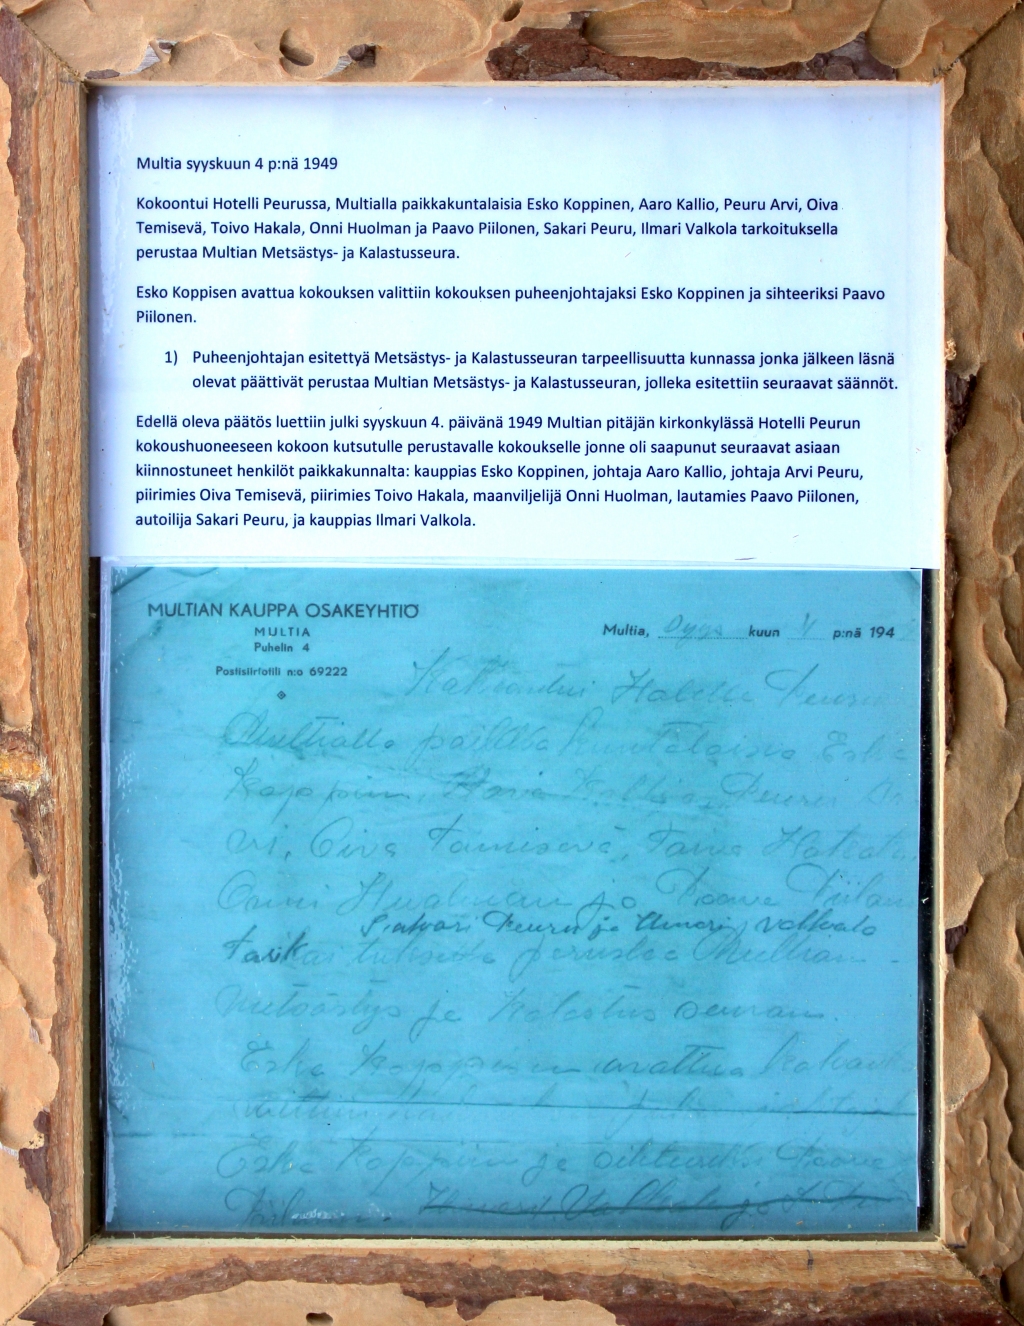 Multia syyskuun 4 p:nä 1949
Kokoontui Hotelli Peurussa, Multialla paikkakuntalaisia Esko Koppinen, Aaro Kallio, Peuru Arvi, Oiva
Temisevä, Toivo Hakala, Onni Huolman ja Paavo Piilonen, Sakari Peuru, Ilmari Valkola tarkoituksella
perustaa Multian Metsästys- ja Kalastusseura.
Esko Koppisen avattua kokouksen valittiin kokouksen puheenjohtajaksi Esko Koppinen ja sihteeriksi Paavo
Piilonen.
1) Puheenjohtajan esitettyä Metsästys- ja Kalastusseuran tarpeellisuutta kunnassa jonka jälkeen läsnä
olevat päättivät perustaa Multian Metsästys- ja Kalastusseuran, jolleka esitettiin seuraavat säännöt.
Edellä oleva päätös luettiin julki syyskuun 4. päivänä 1949 Multian pitäjän kirkonkylässä Hotelli Peurun
kokoushuoneeseen kokoon kutsutulle perustavalle kokoukselle jonne oli saapunut seuraavat asiaan
kiinnostuneet henkilöt paikkakunnalta: kauppias Esko Koppinen, johtaja Aaro Kallio, johtaja Arvi Peuru,
piirimies Oiva Temisevä, piirimies Toivo Hakala, maanviljelijä Onni Huolman, lautamies Paavo Piilonen,
autoilija Sakari Peuru, ja kauppias Ilmari Valkola.
MULTIAN KAUPPA OSAKEYHTIÖ
MULTIA
Puhelin 4
Postisiirtotili n:o 69222
Multia, Syys kuun 4 p:nä 194
Hotelli Peuru
Multialla paikka kuntalaisia Esko
Kallio, Peuru
vi, Oiva Hakala,
Onni Huolman ja Paavo
Sakari Peuru ja Ilmari
perustaa Multian
metsästys ja kalastus seuran.
Esko Koppisen avattua
Esko Koppinen ja sihteeriksi Paavo